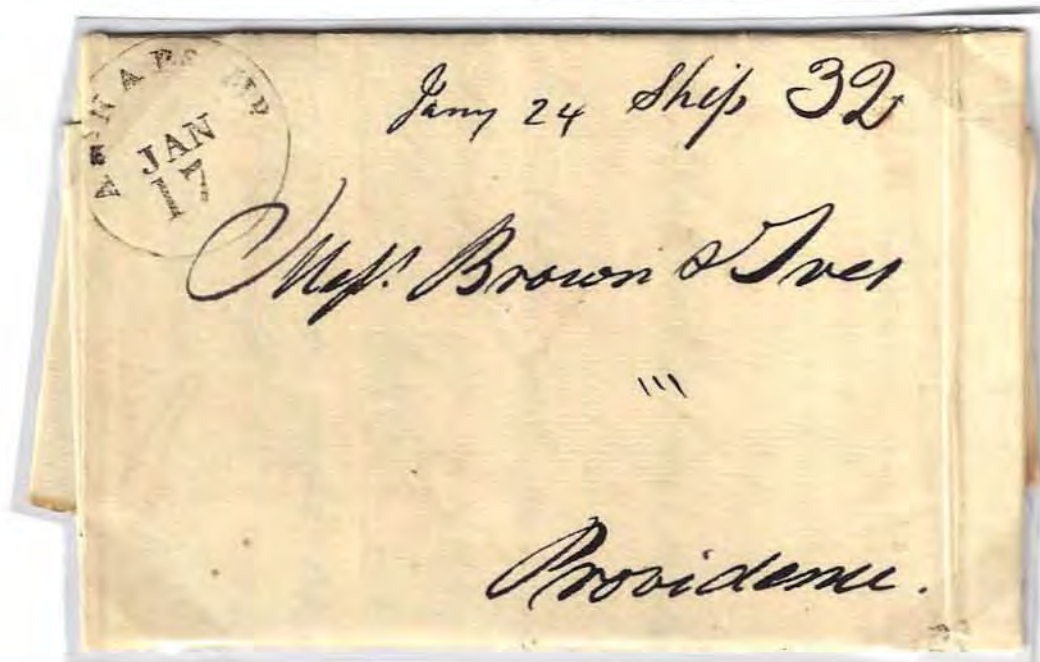 ANNAPS. MD
JAN
17
Jany 24 Ship 32
Messrs. Brown & Ives
Providence.